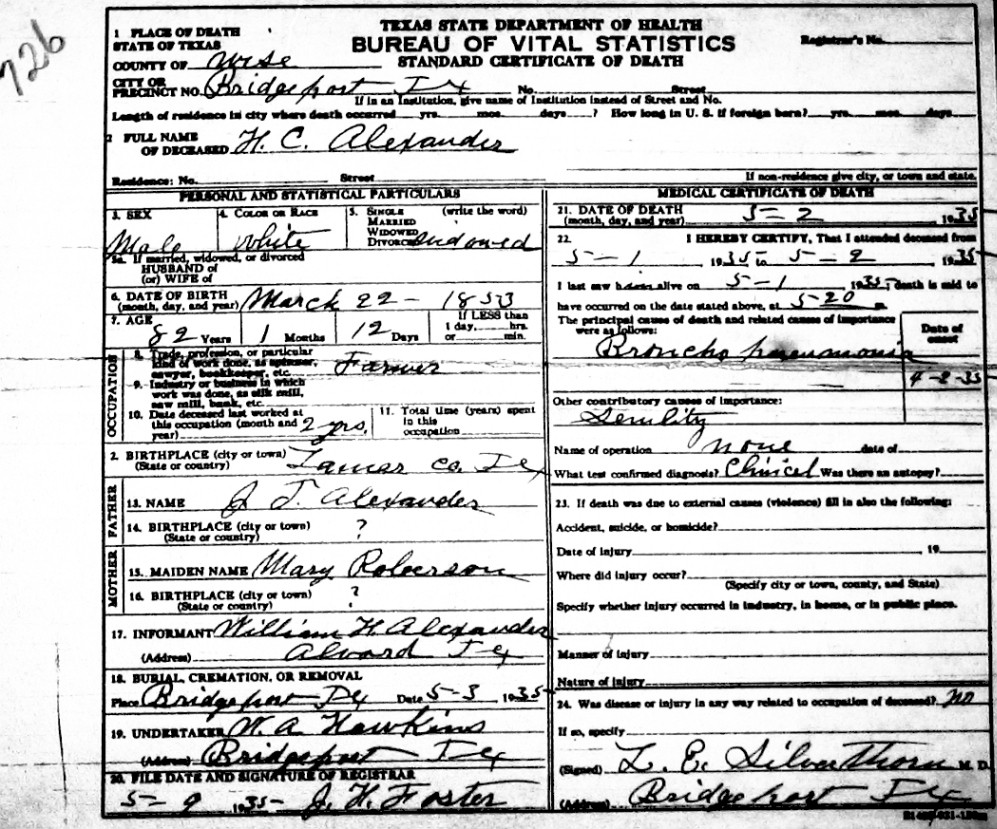 726
TEXAS STATE DEPARTMENT OF HEALTH
BUREAU OF VITAL STATISTICS
STANDARD CERTIFICATE OF DEATH
Registrar's No.
1 PLACE OF DEATH
STATE OF TEXAS
COUNTY OF Wise
CITY OR
PRECINCT NO. Bridgeport Tex No. Street
If in an Institution, give name of Institution instead of Street and No.
Length of residence in city where death occurred yrs. mos. days ? How long in U. S. if foreign born? yrs. mos. days
2 FULL NAME
OF DECEASED H. C. Alexander
Residence: No. Street If non-residence give city, or town and state.
PERSONAL AND STATISTICAL PARTICULARS
3. SEX
Male
4. COLOR OR RACE
White
5. SINGLE (write the word)
MARRIED
WIDOWED
DIVORCED widowed
5a. If married, widowed, or divorced
HUSBAND of
(or) WIFE of
6. DATE OF BIRTH
(month, day, and year) March 22 - 1853
7. AGE
82 Years 1 Months 12 Days
If LESS than
1 day, hrs.
or min.
OCCUPATION
8. Trade, profession, or particular
kind of work done, as spinner,
sawyer, bookkeeper, etc. Farmer
9. Industry or business in which
work was done, as silk mill,
saw mill, bank, etc.
10. Date deceased last worked at
this occupation (month and
year) 2 yrs.
11. Total time (years) spent
in this
occupation
2. BIRTHPLACE (city or town)
(State or country) Lamar Co. Tex
FATHER
13. NAME J T. Alexander
14. BIRTHPLACE (city or town)
(State or country) ?
MOTHER
15. MAIDEN NAME Mary Roberson
16. BIRTHPLACE (city or town)
(State or country) ?
17. INFORMANT William H. Alexander
(Address) Alvord Tex
18. BURIAL, CREMATION, OR REMOVAL
Place Bridgeport Tex Date 5-3 1935
19. UNDERTAKER W. A. Hawkins
(Address) Bridgeport Tex
20. FILE DATE AND SIGNATURE OF REGISTRAR
5-9 1935- J. H. Foster
MEDICAL CERTIFICATE OF DEATH
21. DATE OF DEATH
(month, day, and year) 5-2 1935
22. I HEREBY CERTIFY, That I attended deceased from
5-1 1935 to 5-2, 1935
I last saw alive on 5-1 1935; death is said to
have occurred on the date stated above, at 5-20 m.
The principal cause of death and related causes of importance
were as follows:
Date of
onset
Broncho pneumonia
4-2-35
Other contributory causes of importance:
Senility
Name of operation none date of
What test confirmed diagnosis? Clinical Was there an autopsy?
23. If death was due to external causes (violence) fill in also the following:
Accident, suicide, or homicide?
Date of injury , 19
Where did injury occur?
(Specify city or town, county, and State)
Specify whether injury occurred in industry, in home, or in public place.
Manner of injury
Nature of injury
24. Was disease or injury in any way related to occupation of deceased? no
If so, specify
(Signed) L. E. Silverthorn M. D.
(Address) Bridgeport Tex